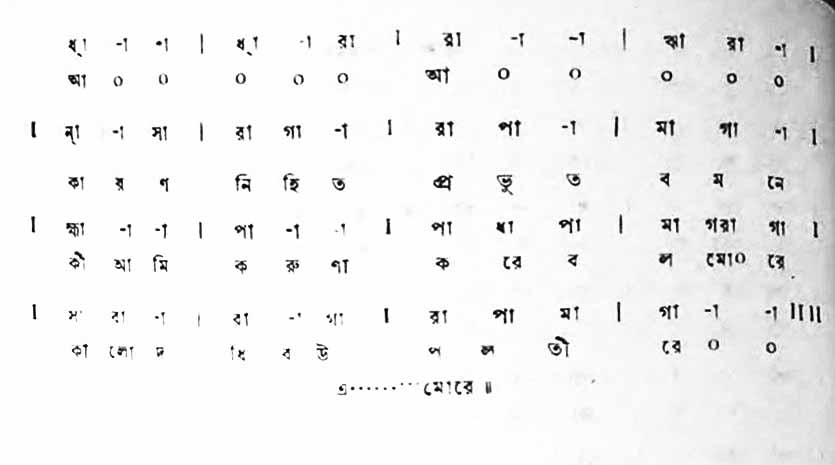 ধ্‌া -া -া | ধ্‌া -া রা I রা -া -া | ঋা রা -া I
আ ০ ০ ০ ০ ০ আ ০ ০ ০ ০ ০
I ন্‌া -া সা | রা গা -া I রা পা -া | মা গা -া I
কা র ণ নি হি ত প্র ভু ত ব ম নে
I হ্মা -া -া | পা -া -া I পা ধা পা | মা গরা গা I
কী আ মি ক রু ণা ক রে ব ল মো০ রে
I রা -া | রা -া গা I রা পা মা | গা -া -া IIII
কা লো ব উ প ল তী রে ০ ০
এ········· মোরে ॥